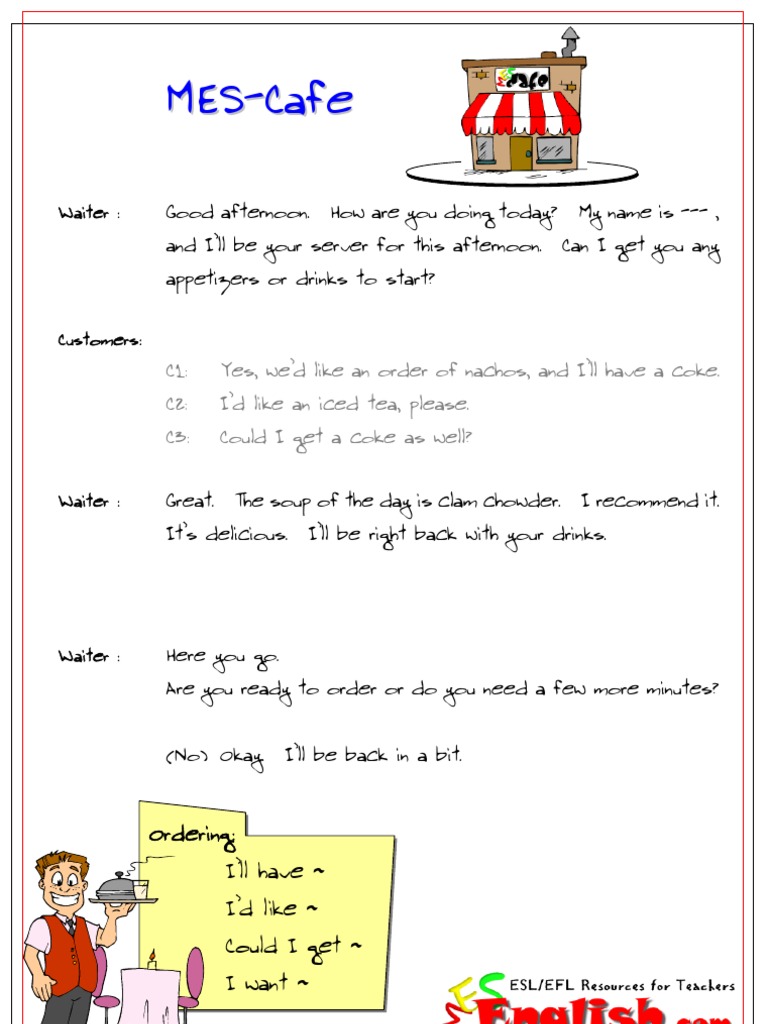 MES-Cafe
MES
cafe
Waiter : Good afternoon. How are you doing today? My name is --- ,
and I'll be your server for this afternoon. Can I get you any
appetizers or drinks to start?
Customers:
C1: Yes, we'd like an order of nachos, and I'll have a coke.
C2: I'd like an iced tea, please.
C3: Could I get a coke as well?
Waiter : Great. The soup of the day is clam chowder. I recommend it.
It's delicious. I'll be right back with your drinks.
Waiter : Here you go.
Are you ready to order or do you need a few more minutes?
(No) Okay I'll be back in a bit.
Ordering:
I'll have ~
I'd like ~
Could I get ~
I want ~
ESL/EFL Resources for Teachers
MES
English.com